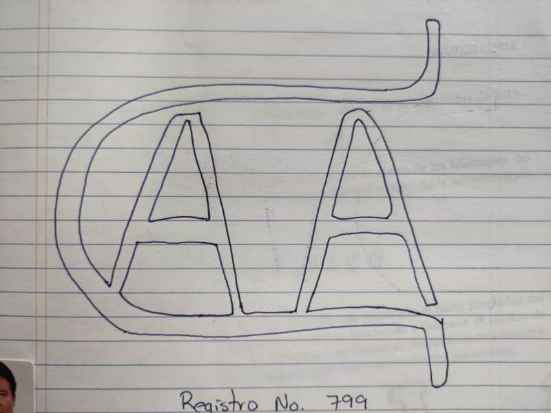 CAA
Registro No. 799